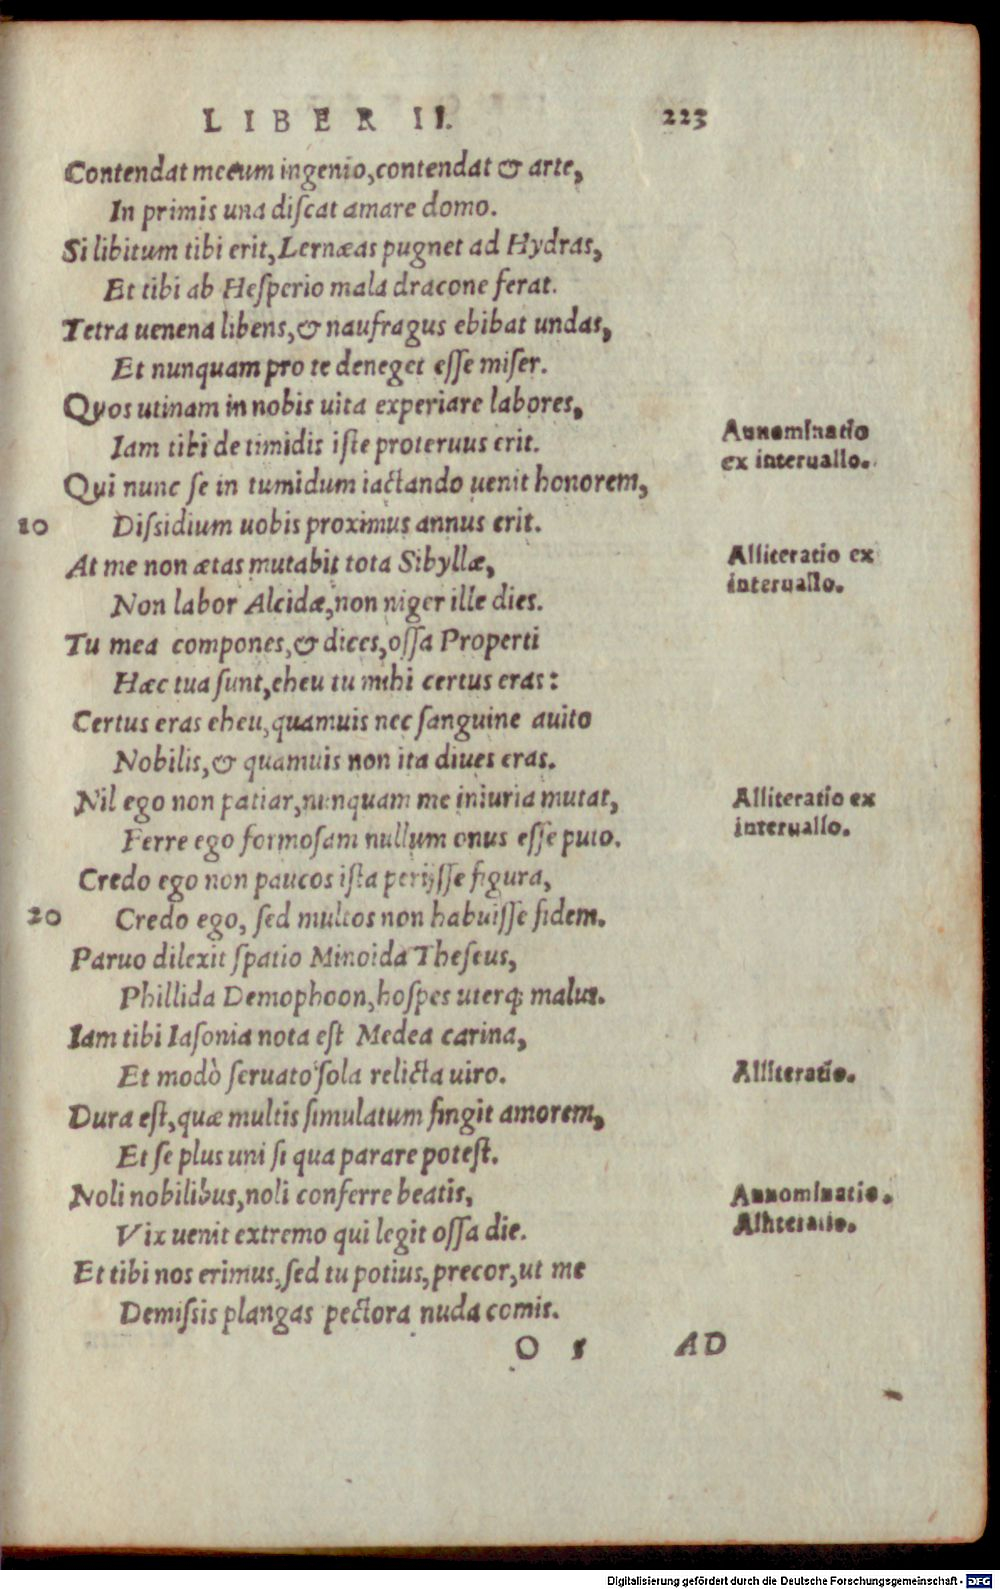 LIBER II. 223
Contendat mecum ingenio, contendat & arte,
In primis una discat amare domo.
Si libitum tibi erit, Lernæas pugnet ad Hydras,
Et tibi ab Hesperio mala dracone ferat.
Tetra uenena libens, & naufragus ebibat undas,
Et nunquam pro te deneget esse miser.
Quos utinam in nobis uita experiare labores,
Iam tibi de timidis iste proteruus erit.
Annominatio
ex interuallo.
Qui nunc se in tumidum iactando uenit honorem,
10 Dissidium uobis proximus annus erit.
At me non ætas mutabit tota Sibyllæ,
Non labor Alcidæ, non niger ille dies.
Alliteratio ex
interuallo.
Tu mea compones, & dices, ossa Properti
Hæc tua sunt, eheu tu mihi certus eras:
Certus eras eheu, quamuis nec sanguine auito
Nobilis, & quamuis non ita diues eras.
Nil ego non patiar, nunquam me iniuria mutat,
Ferre ego formosam nullum onus esse puto.
Alliteratio ex
interuallo.
Credo ego non paucos ista perijsse figura,
20 Credo ego, sed multos non habuisse fidem.
Paruo dilexit spatio Minoida Theseus,
Phillida Demophoon, hospes uterq; malus.
Iam tibi Iasonia nota est Medea carina,
Et modò seruato sola relicta uiro.
Alliteratio.
Dura est, quæ multis simulatum fingit amorem,
Et se plus uni si qua parare potest.
Noli nobilibus, noli conferre beatis,
Vix uenit extremo qui legit ossa die.
Annominatio.
Alliteratio.
Et tibi nos erimus, sed tu potius, precor, ut me
Demissis plangas pectora nuda comis.
O 5 AD
Digitalisierung gefördert durch die Deutsche Forschungsgemeinschaft - DFG